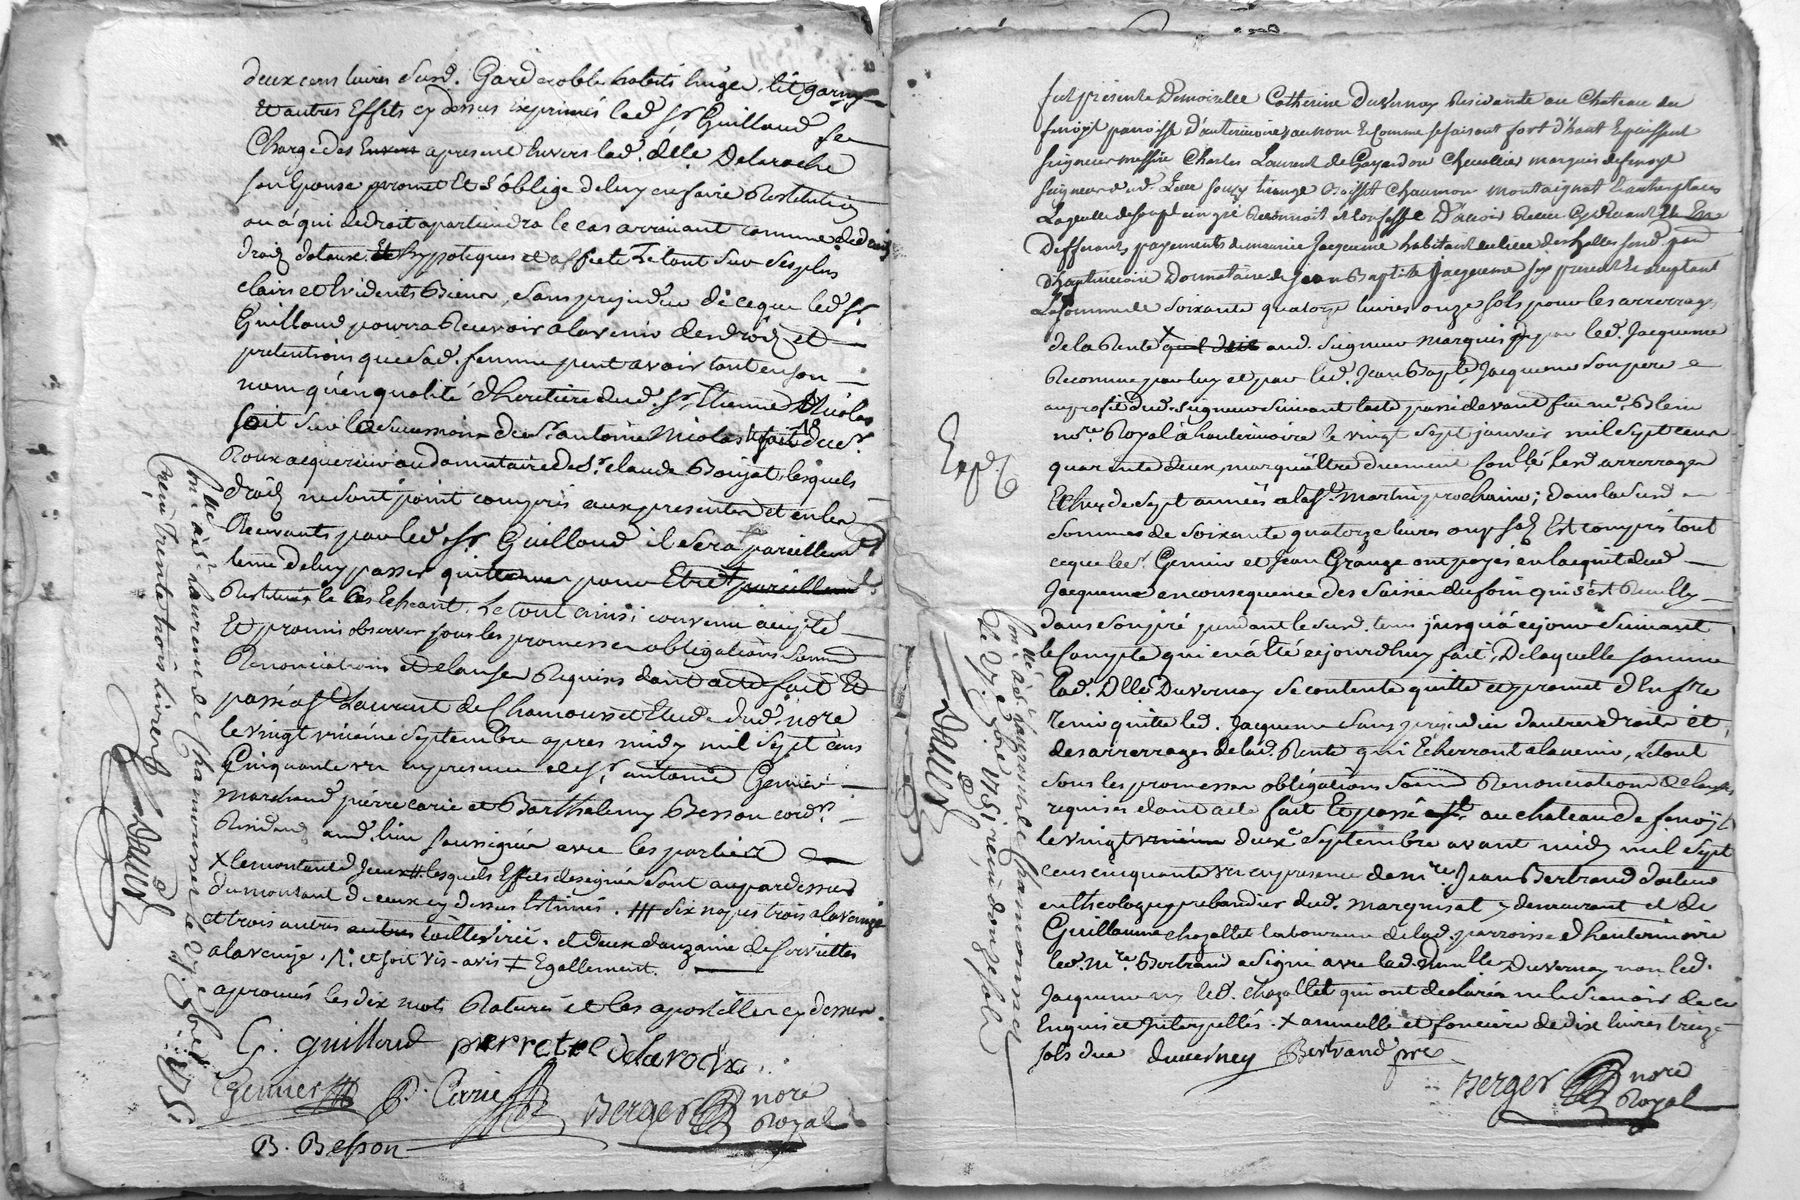 deux cens livres Lesd. Garderobbe habits linge, lit garny
et autres Effets cy dessus exprimés led. Sr. Guilloud se
Charge dès apresent Envers lad. dlle Delaroche
son Epouse promet et s'oblige de luy en faire Restitution
ou à qui de droit apartiendra le cas arrivant comme
droits dotaux Et hypotequés et affecté le tout sur ses plus
clairs et Evidents Biens, sans prejudice de ce que led. Sr.
Guilloud pourra Recevoir a lavenir des droits et
pretentions que sad. femme peut avoir tant en son
nom qu'en qualité d'heritiere dud. Sr. Etienne Nicolas
soit sur la succession de Sr. antoine Nicolas soit du Sr.
Roux acquereur ou donnataire de Sr. claude Boujat lesquels
droits ne sont point compris aux presentes et en les
Recevants par led. Sr. Guilloud il sera pareillement
tenu de luy passer quittance pour Etre pareillement
Restitués le Cas Echeant. Le tout ainsi convenu accepté
Et promis observer sous les promesses obligations soumissions
Renonciations et clauses Requises dont acte fait Et
passé a St. Laurent de Chamousset Etude dud. nore
le vingt unieme Septembre apres midy mil sept cens
Cinquante un en presence de Sr. antoine Genier
marchand pierre Carie et Barthelemy Besson cordrs.
Residants aud. lieu soussignés avec les parties
X le montant d'jceux # lesquels Effets designés sont au pardessus
du montant de ceux cy dessus Estimés. ### six napes trois a la venize
et trois autres autres toille virée. et deux douzaine de serviettes
a la venize. /. et soit vis-avis ‡ Egallement.
aprouvés les dix mots Raturés et les apostilles cy dessus.
G. guilloud pierrette delaroche
Genier P. Carie Berger nore Royal
B. Besson
Con.lé à St. Laurend de Chamousset le 7bre 1751
Reçu trente trois livres
Dauel
fut presente Demoiselle Catherine Duvernay Residante au Chateau de
fenoÿl parroisse d'auterivoire au nom Et comme se faisant fort d'haut Et puissent
seigneur messire Charles Laurent de Gayardon Chevallier marquis de fenoyl
seigneur dud. Lieu souzy Croisset Chaumon montaignat Et autres places
Laquelle de son plein gré Reconnoit et confesse D'avoir Receu cy devant
Differants payements de maurice Jacqueme habitant
d'hauterivoire Donnataire de Jean Baptiste Jacqueme son pere present Et acceptant
La somme de soixante quatorze livres onze sols pour les arrerrages
de la Rente X aud. seigneur marquis par led. Jacqueme
Reconnue par luy et par led. Jean Bapte. Jacqueme son pere
au profit dud. seigneur suivant lacte passé devant feu me. Blein
nore. Royal à hauterivoire le vingt sept janvier mil sept cens
quarante deux, marqué Etre duement Conllé. Lesd. arrerrages
Echus de sept années a la fe. St. martin prochaine; dans lasusd.
somme de soixante quatorze livres onze sols Est compris tout
ceque les. Gennier et Jean Grange ont payés en lacquit dud.
Jacqueme en consequence des saisies du foin qui s'est Recully
dans son pré pendant le susd. tems jusqu'a ce jour suivant
le Compte qui en a Eté cejourdhuy fait, De laquelle somme
Lad. Dlle. Duvernay se contente quitte et promet d'En fre
tenir quitte led. Jacqueme sans prejudice dautres droits et
des arrerrages de lad. Rente qui Echerront a lavenir, Letout
sous les promesses obligations soumd. Renonciations et clauses
requises dont acte fait Et passé au chateau de fenoÿl
le vingt unieme deuxe. septembre avant midy mil sept
cens cinquante un en presence de mre. Jean Bertrand docteur
en theologie prebandier dud. marquisat y demeurant et de
Guillaume chazallet laboureur de lad. parroisse d'hauterivoire
led. mre. Bertrand a signé avec lad. Dmlle. Duvernay non led.
Jacqueme ny led. chazallet qui ont declarés ne le scavoir de ce
Enquis et Interpellés. X annuelle et fonciere de dix livres treize
sols due duvernay Bertrand ptre
Berger nore Royal
Exp.
Con.lé à St. Laurend de Chamousset
Le 7bre 1751 reçu douze sols
Dauel